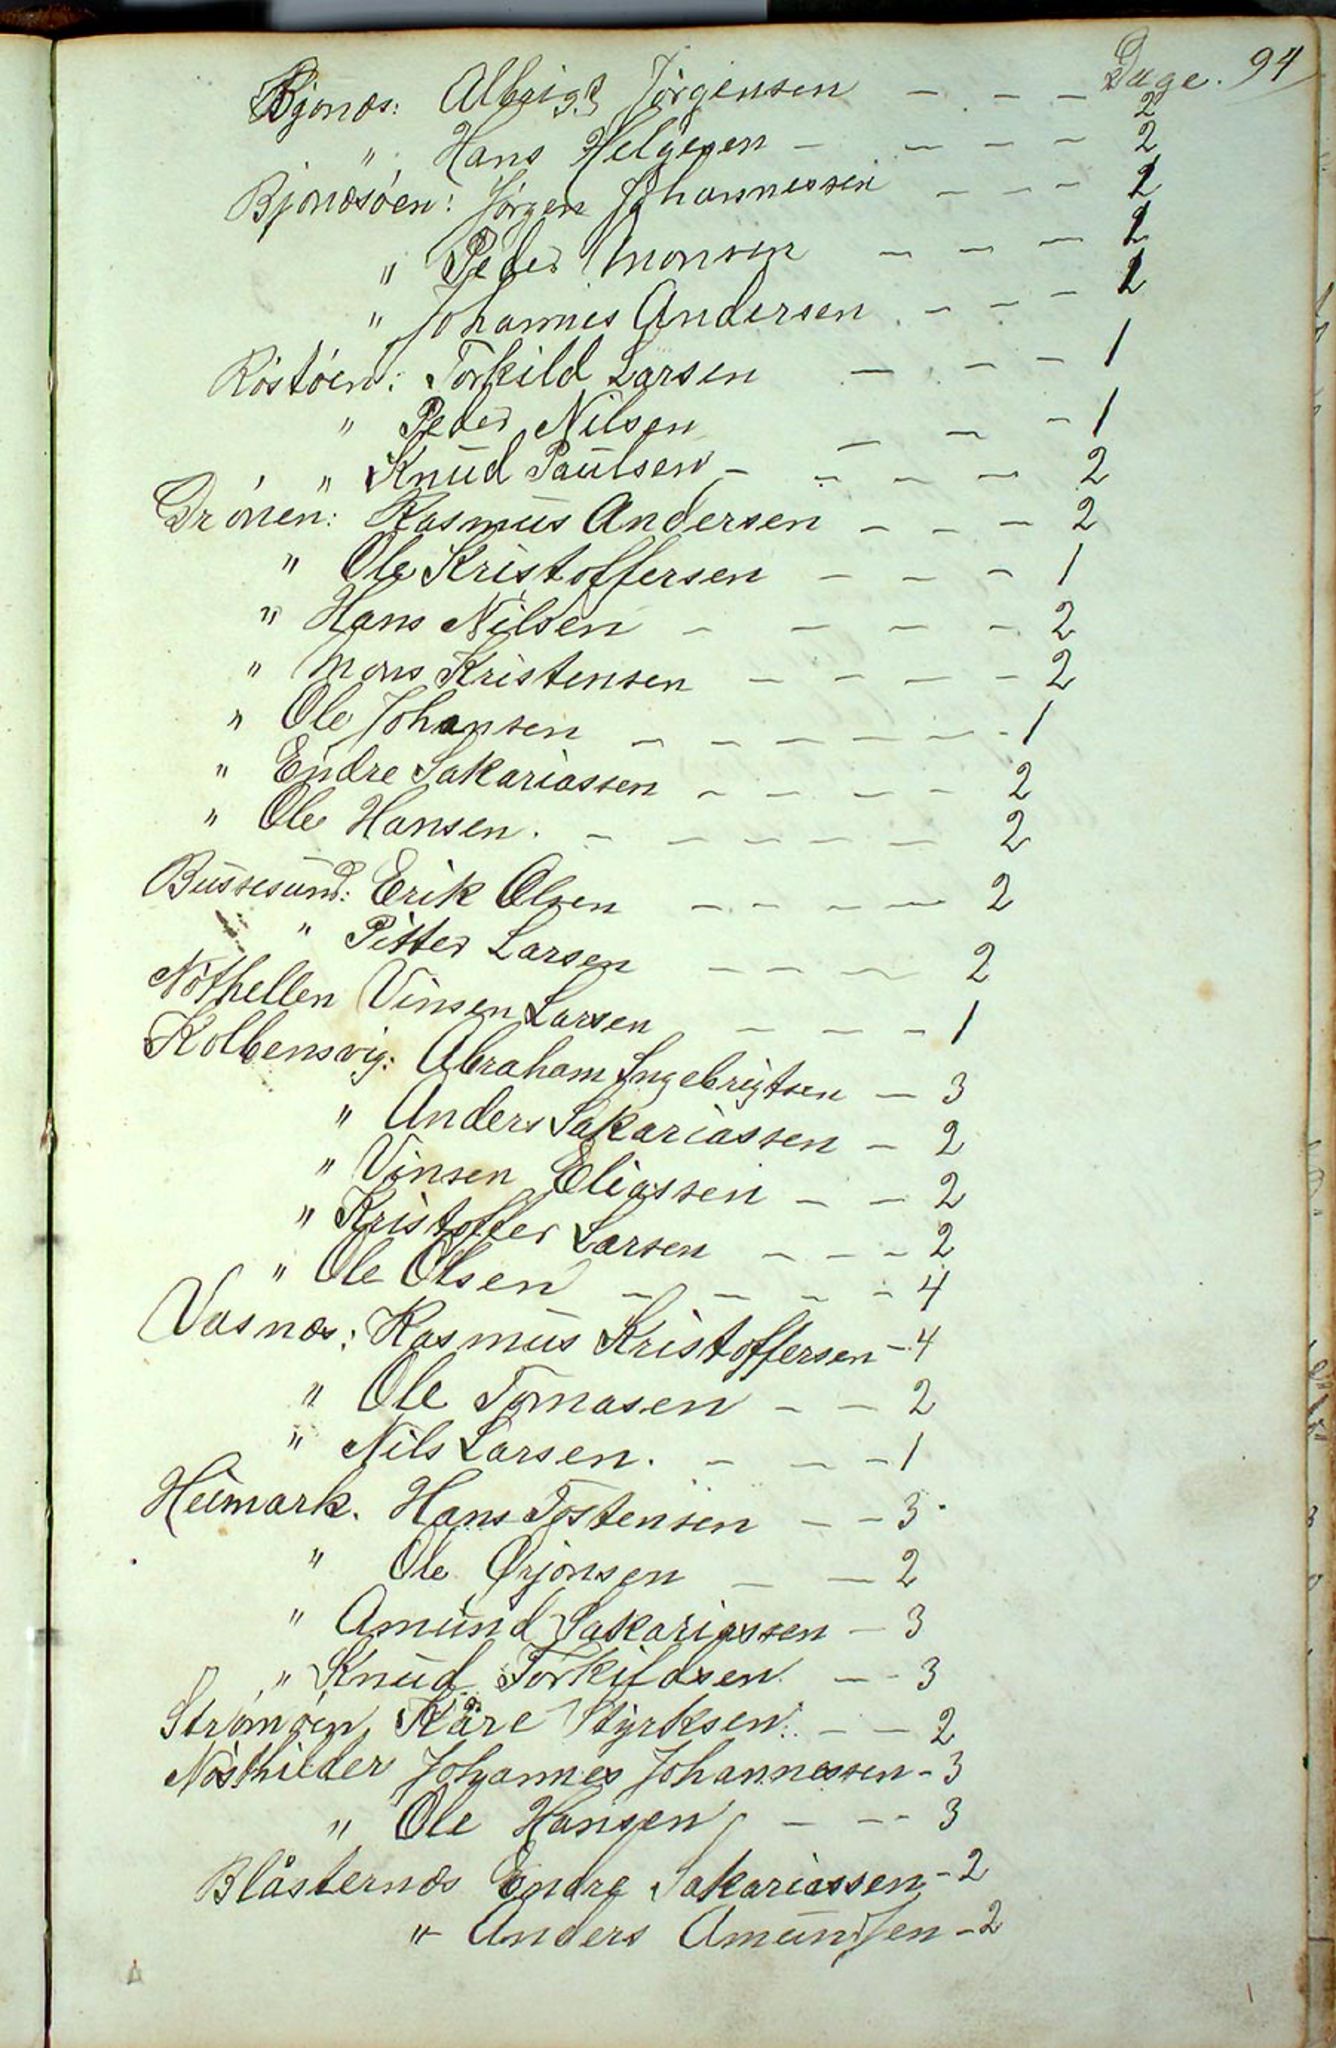 Dage. 94
Bjonæs: Albrigt Jörgensen - - - 2
" Hans Helgesen - - - - 2
Bjonæsöen: Jörgen Johannessen - - - 2
" Peder Monsen - - - 2
" Johannes Andersen - - - 2
Röstöen: Torkild Larsen - - - 1
" Peder Nilsen - - - 1
" Knud Paulsen - - - - 2
Drönen: Rasmus Andersen - - - 2
" Ole Kristoffersen - - - 1
" Hans Nilsen - - - - 2
" Mons Kristensen - - - - 2
" Ole Johansen - - - - - - 1
" Endre Sakariassen - - - - 2
" Ole Hansen. - - - - - 2
Bussesund: Erik Olsen - - - - 2
" Pitter Larsen - - - 2
Nöthellen Vinsen Larsen - - - 1
Kolbensvig: Abraham Ingebrigtsen - 3
" Anders Sakariassen - 2
" Vinsen Eliassen - - 2
" Kristoffer Larsen - - - 2
" Ole Olsen - - - - 4
Vasnæs: Rasmus Kristoffersen - 4
" Ole Tomasen - - 2
" Nils Larsen. - - - 1
Heimark. Hans Tostensen - - 3
" Ole Ørjonsen - - 2
" Amund Sakariassen - 3
" Knud Torkildsen - - 3
Strömöen, Kåre Styrksen. - - 2
Nösthilder Johannes Johannessen - 3
" Ole Hansen - - - 3
Blåsternæs Endre Sakariassen - 2
" Anders Amundsen - 2